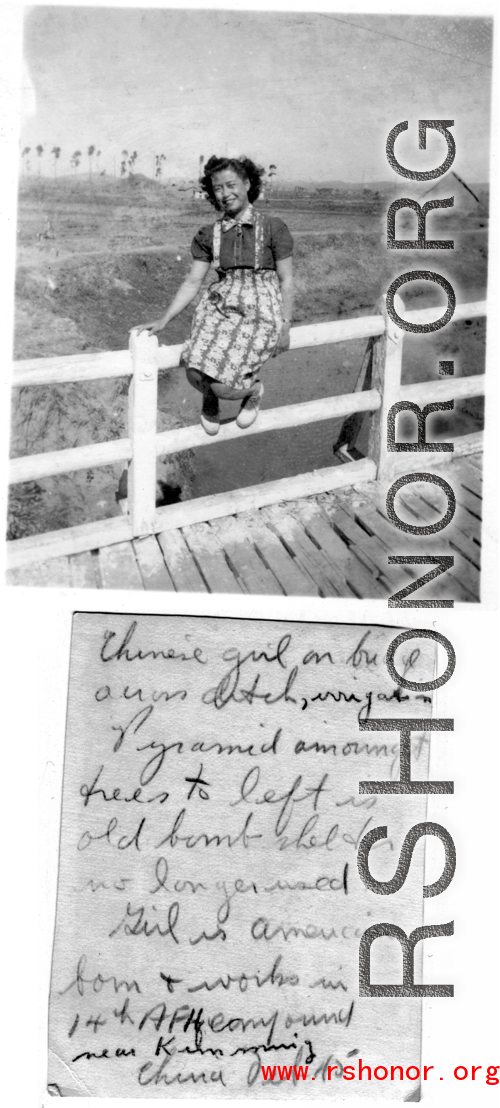 Chinese girl on bridge
across ditch, irrigation
Pyramid amoungst
trees to left is
old bomb shelter,
no longer used
Girl is american
born & works in
14th AFHq compound
near Kunming
China Feb 45
RSHONOR.ORG
www.rshonor.org